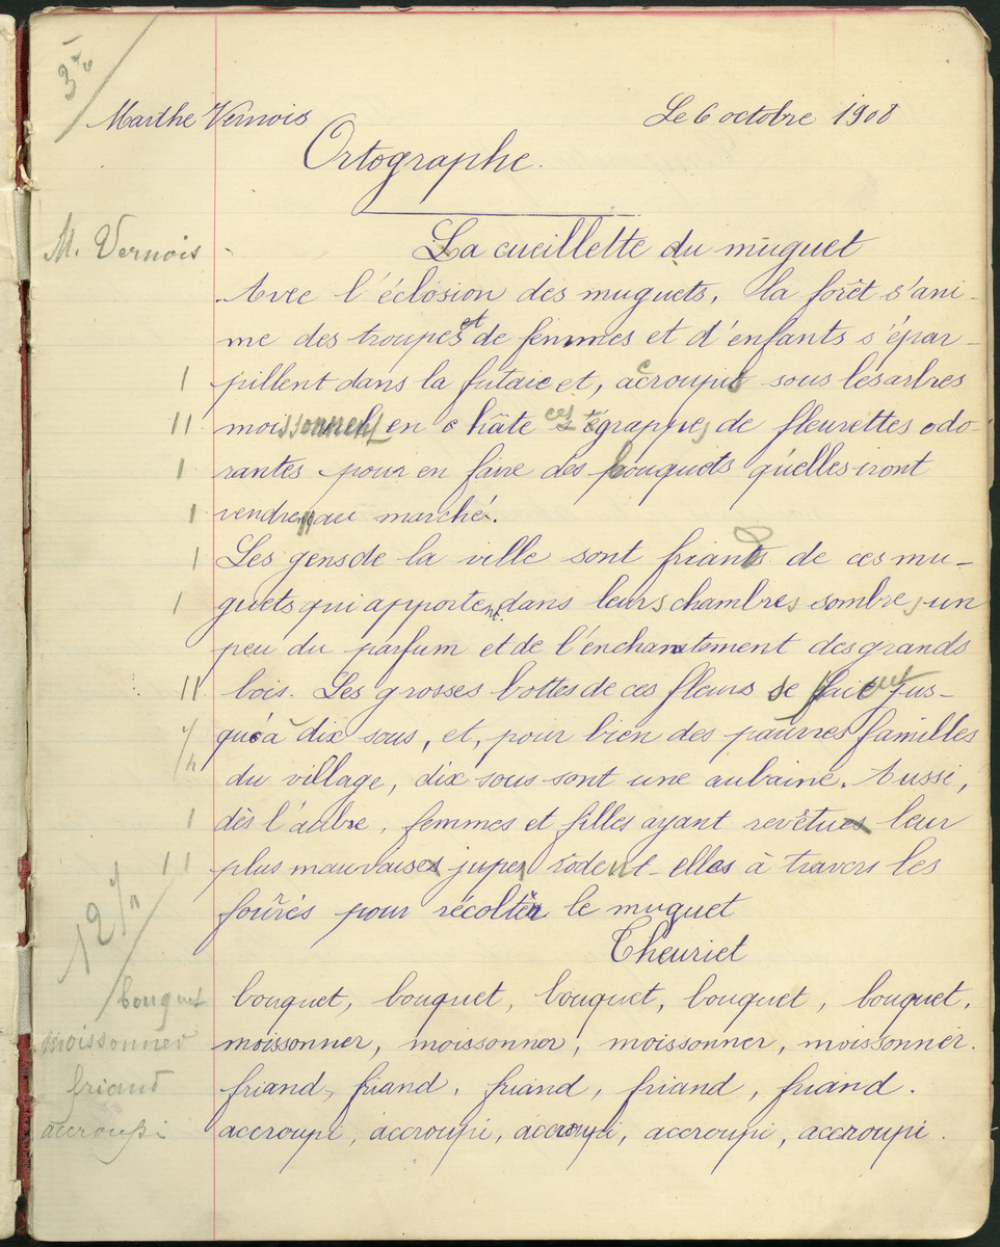 3
Marthe Vernois Le 6 octobre 1908
Ortographe.
M. Vernois
La cueillette du muguet
Avec l'éclosion des muguets, la forêt s'ani-
me des troupes et de femmes et d'enfants s'épar-
pillent dans la futaie et, accroupis sous les arbres
moissonnent en hâte ces grappes de fleurettes odo-
rantes pour en faire des bouquets qu'elles iront
vendre au marché.
Les gens de la ville sont friands de ces mu-
guets qui apportent dans leurs chambres sombres un
peu du parfum et de l'enchantement des grands
bois. Les grosses bottes de ces fleurs se jus-
qu'à dix sous, et, pour bien des pauvres familles
du village, dix sous sont une aubaine. Aussi,
dès l'aube, femmes et filles ayant revêtues leur
plus mauvaises jupes rodent elles à travers les
fourés pour récolter le muguet
Theuriet
12
bouquet bouquet, bouquet, bouquet, bouquet, bouquet.
moissonner moissonner, moissonner, moissonner, moissonner.
friand friand, friand, friand, friand, friand.
accroupi accroupi, accroupi, accroupi, accroupi, accroupi.